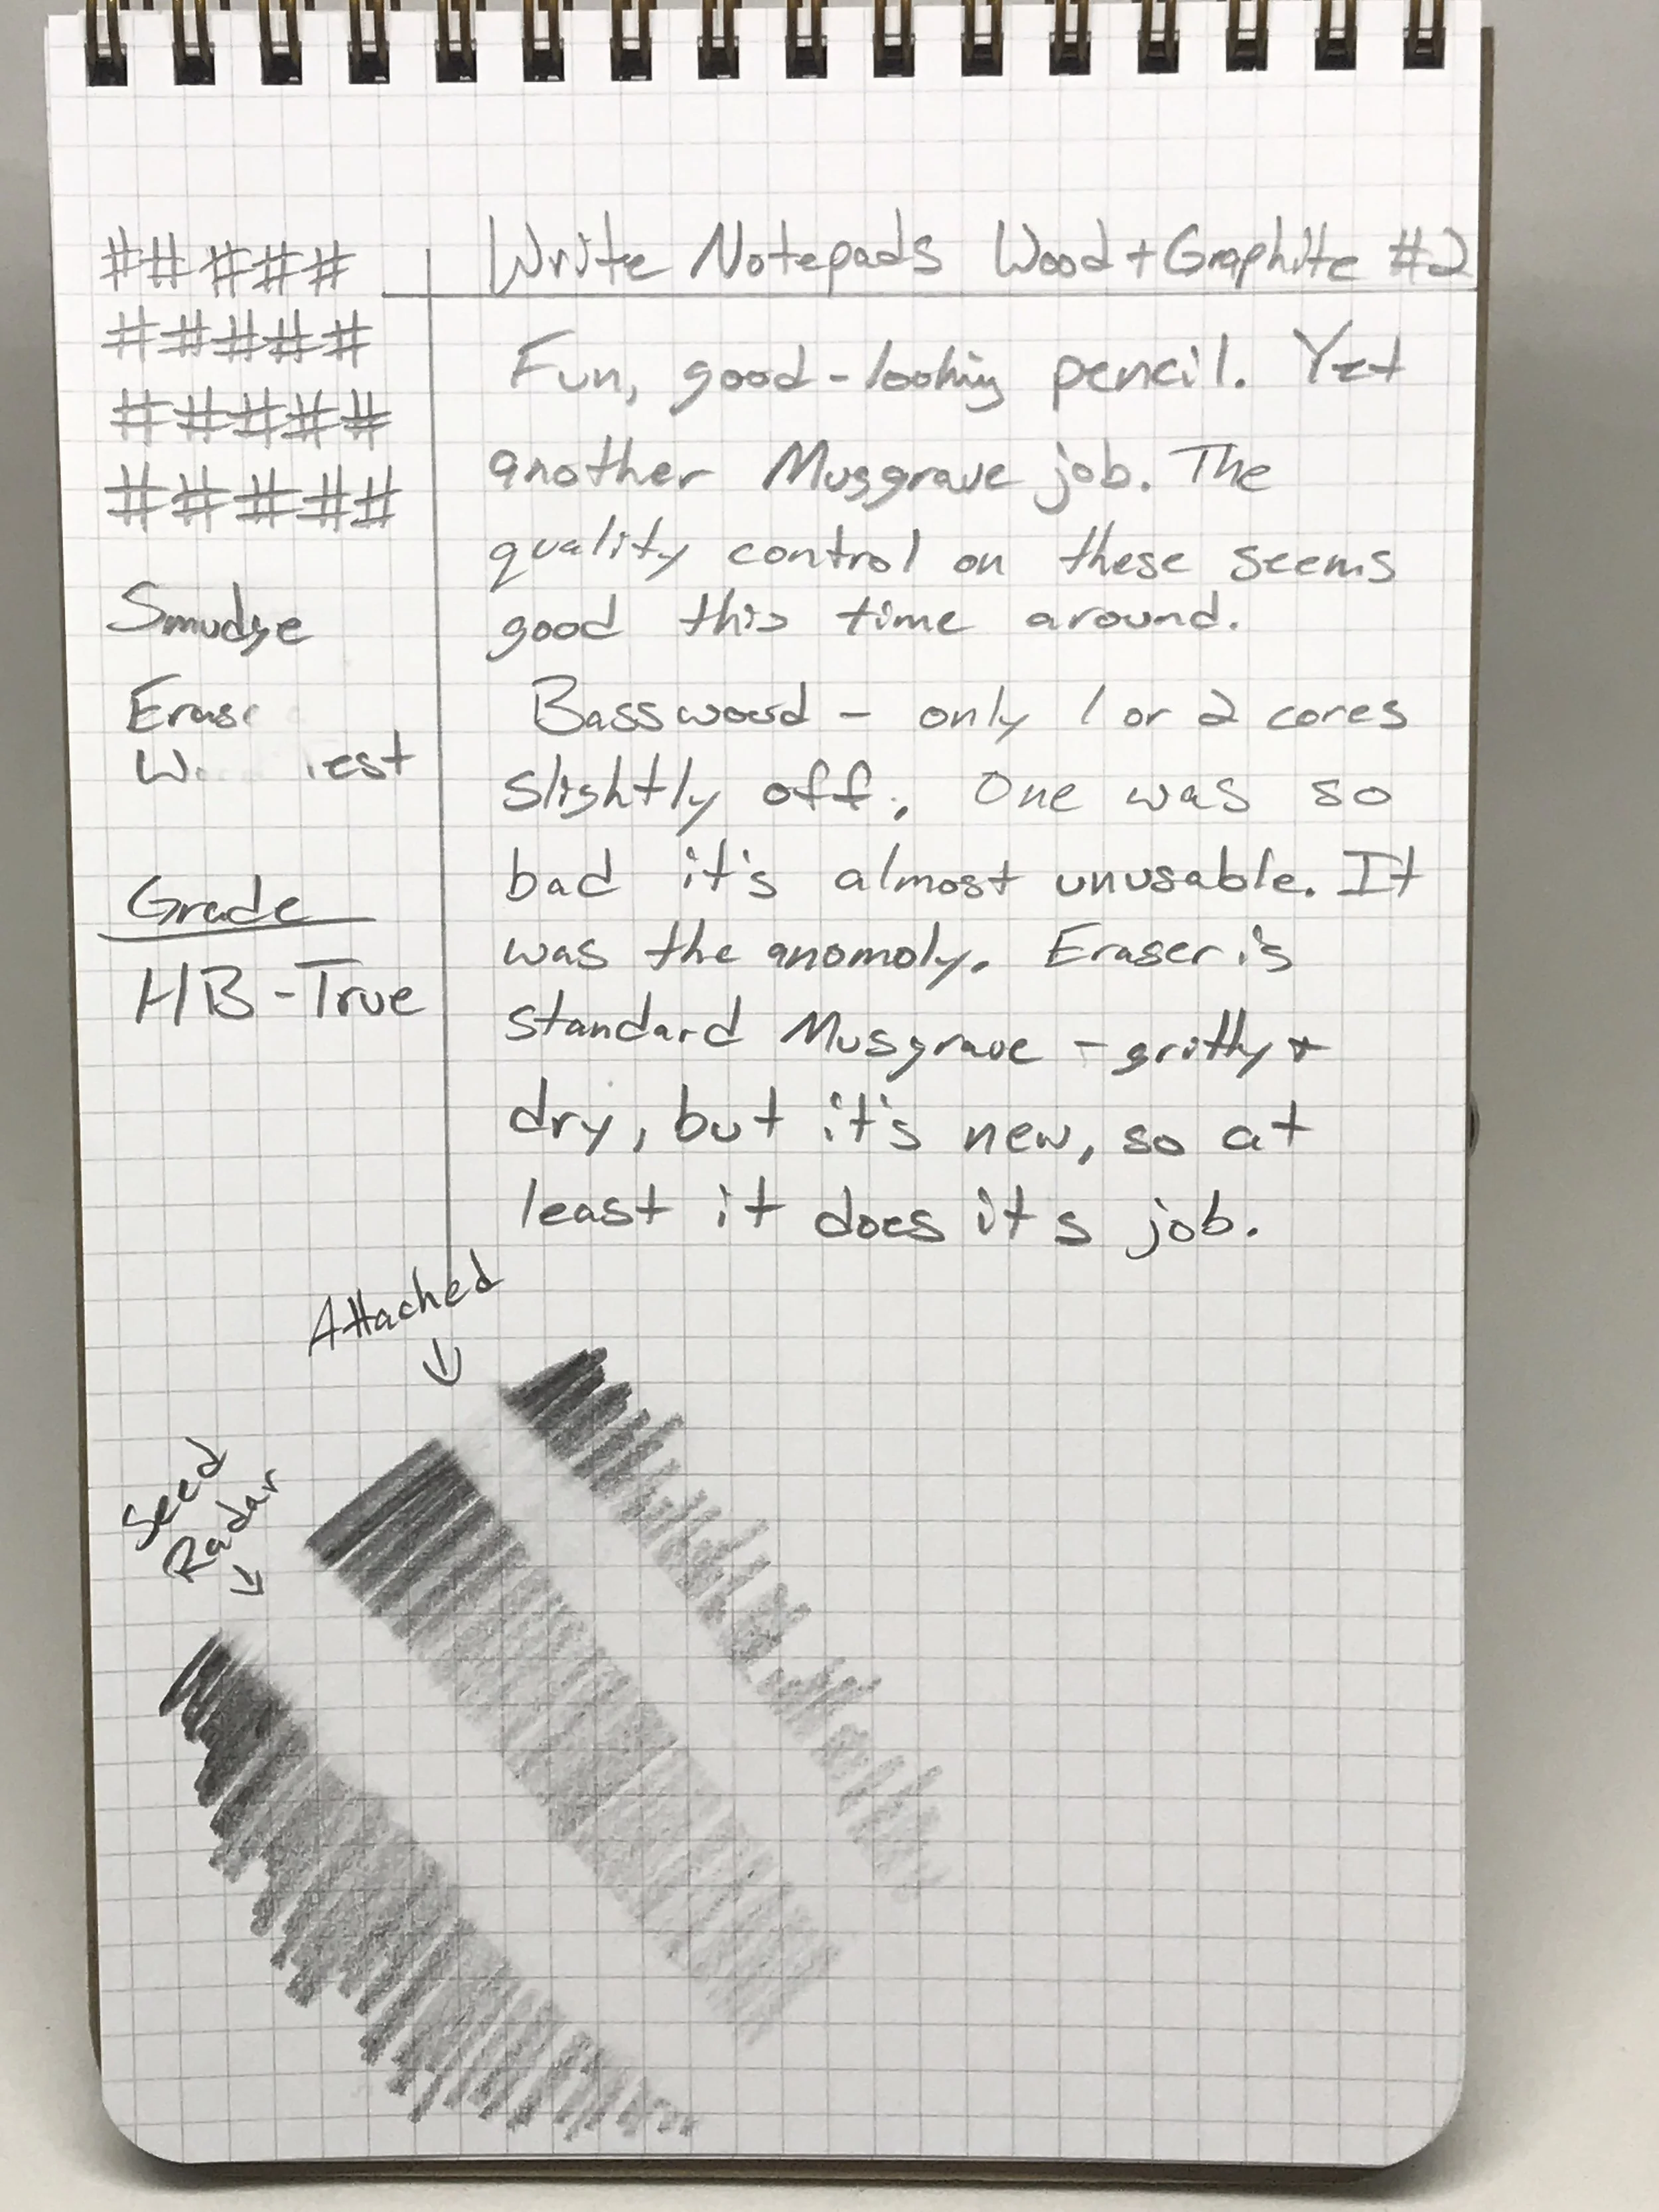 Write Notepads Wood + Graphite #2
# # # # #
# # # # #
# # # # #
# # # # #
Smudge
Erase
Grade
HB - True
Fun, good-looking pencil. Yet
another Musgrave job. The
quality control on these seems
good this time around.
Basswood - only 1 or 2 cores
slightly off. One was so
bad it's almost unusable. It
was the anomoly. Eraser is
standard Musgrave - gritty +
dry, but it's new, so at
least it does it's job.
Attached
Seed
Radar